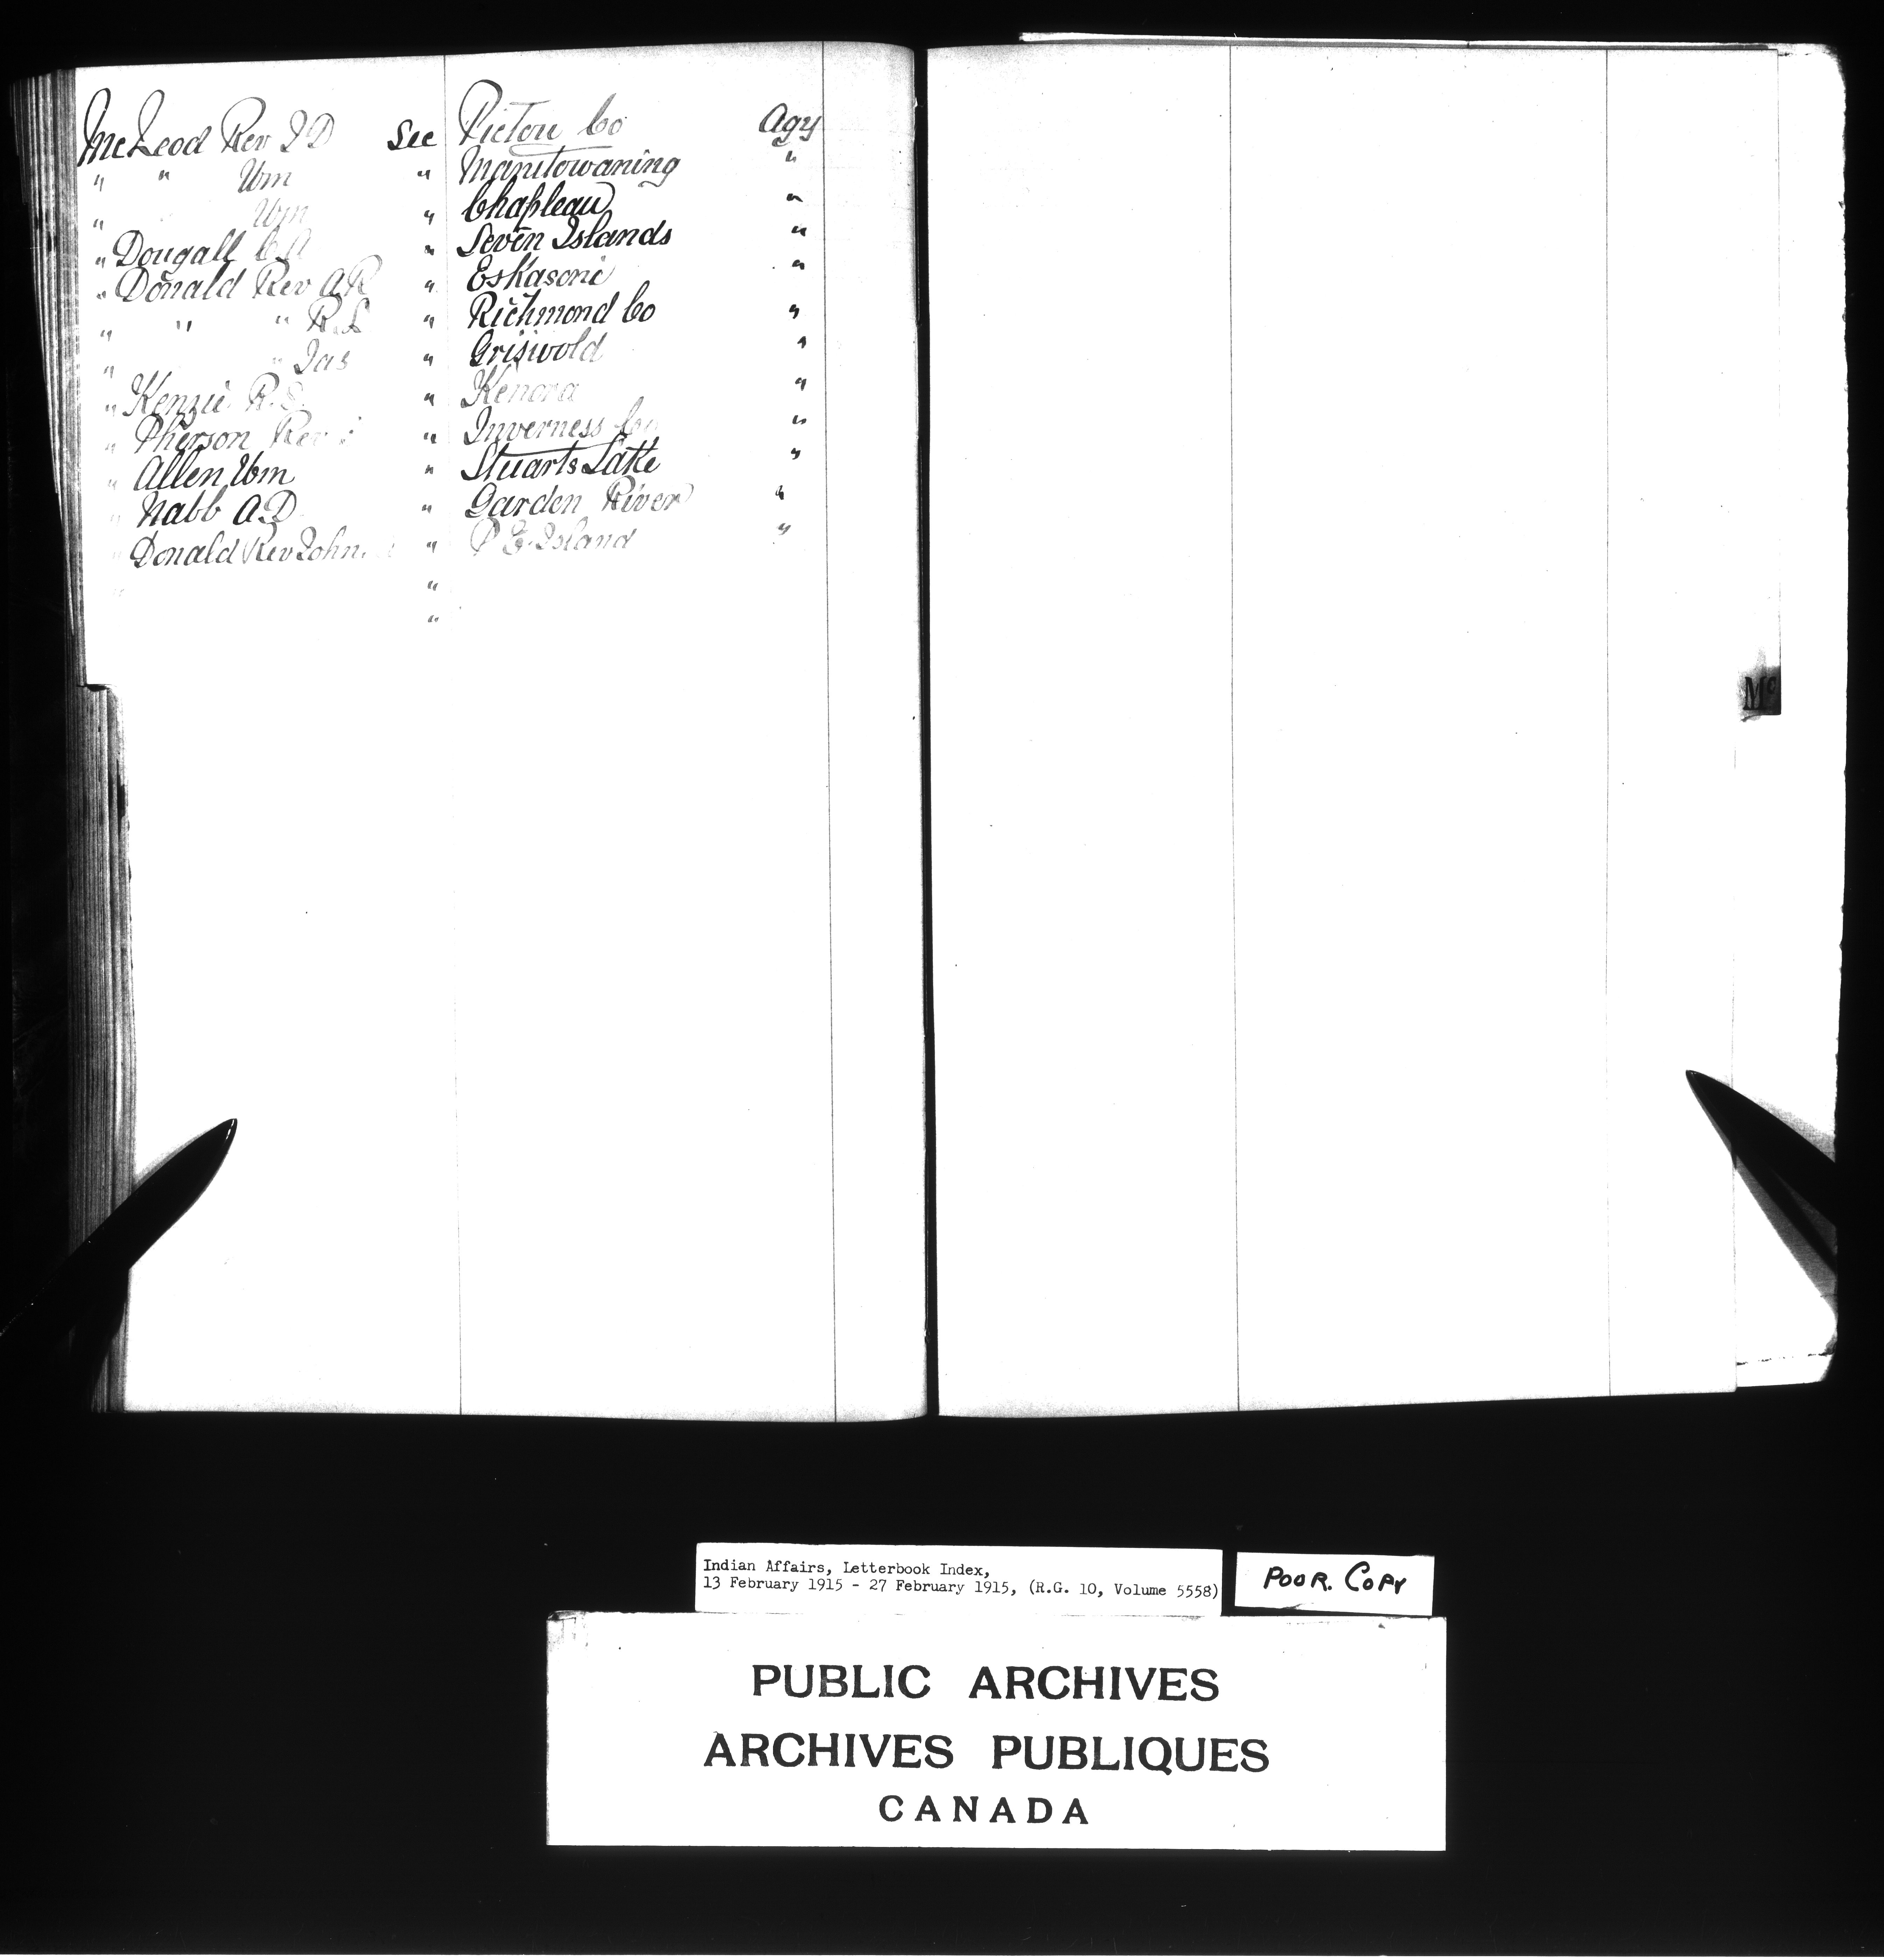 McLeod Rev J D See Pictou Co Agy
" " Wm " Manitowaning "
" Wm " Chapleau "
" Dougall C A " Seven Islands "
" Donald Rev A R " Eskasoni "
" " " R. L " Richmond Co "
" " Jas " Griswold "
" Kenzie R. S. " Kenora "
" Pherson Rev " Inverness Co "
" Allen Wm " Stuarts Lake "
" Nabb A.D. " Garden River "
" Donald Rev John " P E. Island "
" "
"
Mc
Indian Affairs, Letterbook Index,
13 February 1915 - 27 February 1915, (R.G. 10, Volume 5558)
POOR. COPY
PUBLIC ARCHIVES
ARCHIVES PUBLIQUES
CANADA